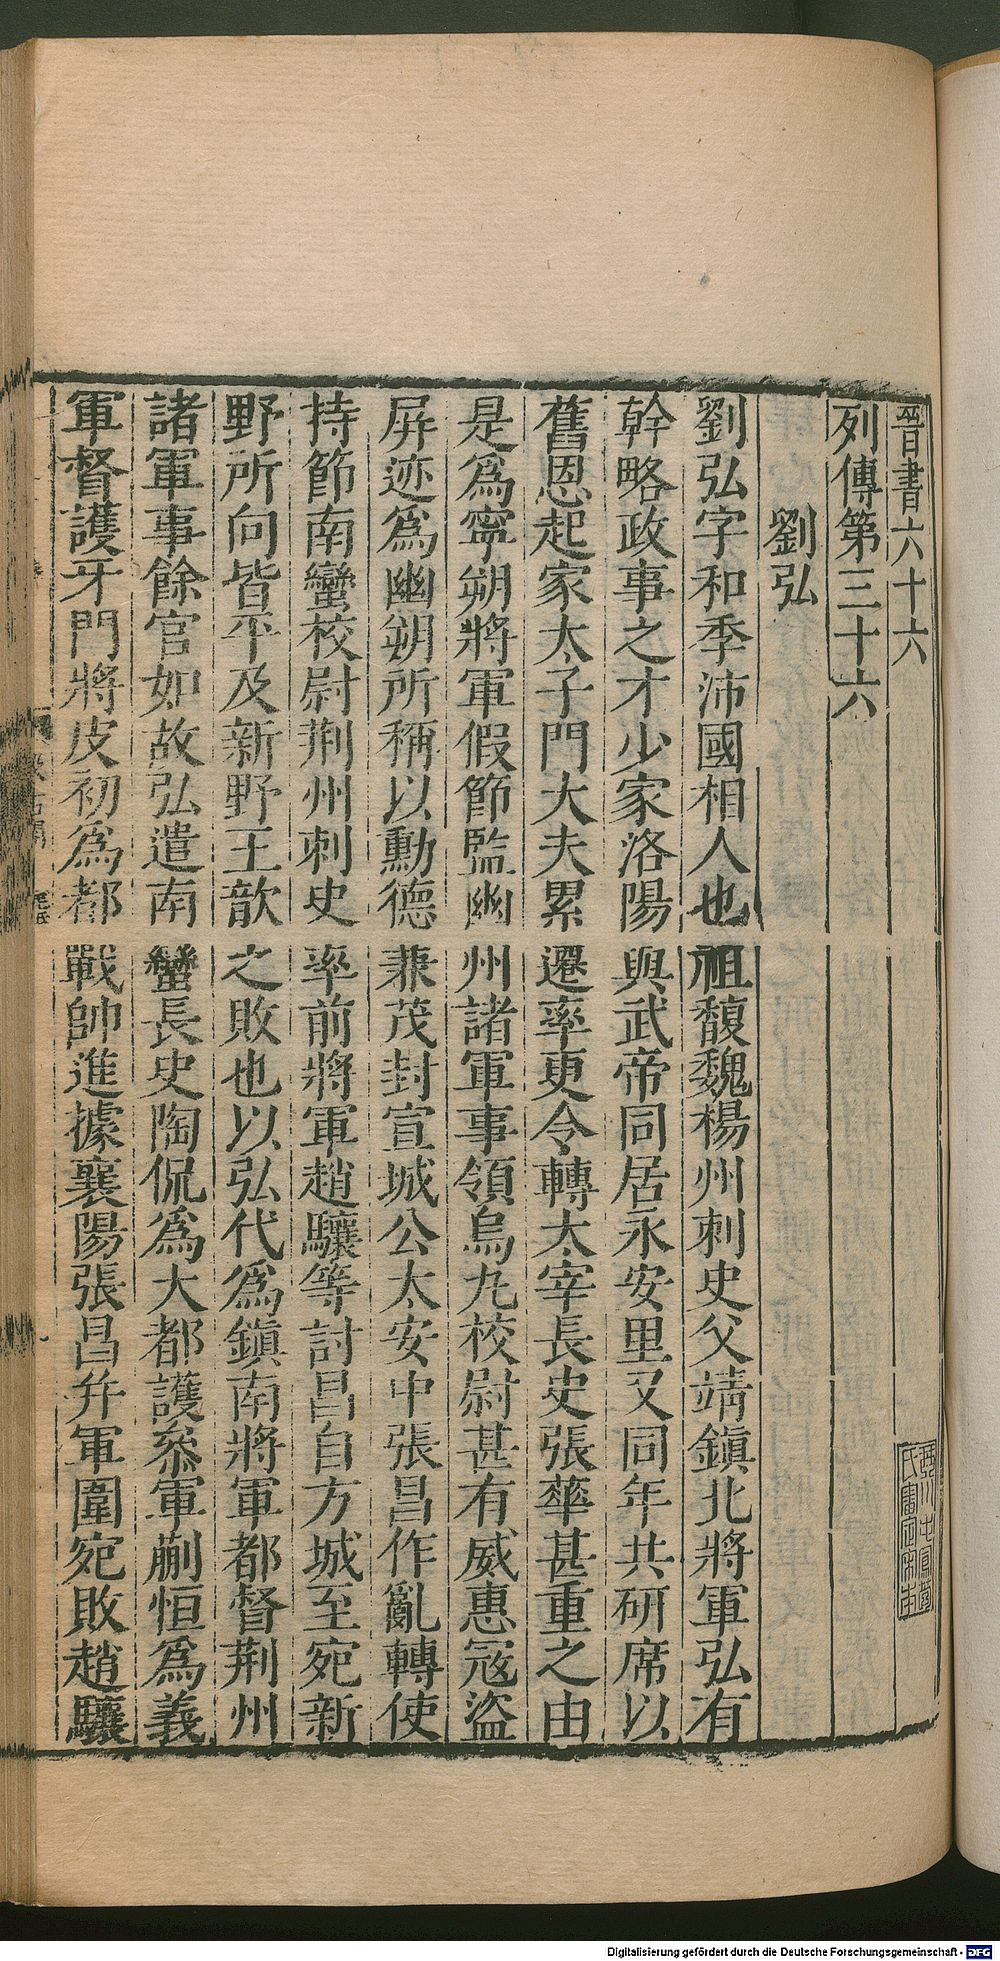 晉書六十六
列傳第三十六
劉弘
劉弘字和季沛國相人也祖馥魏楊州刺史父靖鎭北將軍弘有
幹略政事之才少家洛陽與武帝同居永安里又同年共研席以
舊恩起家太子門大夫累遷率更令轉太宰長史張華甚重之由
是爲寧朔將軍假節監幽州諸軍事領烏丸校尉甚有威惠寇盜
屏迹爲幽朔所稱以勳德兼茂封宣城公太安中張昌作亂轉使
持節南蠻校尉荆州刺史率前將軍趙驤等討昌自方城至宛新
野所向皆平及新野王歆之敗也以弘代爲鎭南將軍都督荆州
諸軍事餘官如故弘遣南蠻長史陶侃爲大都護叅軍蒯恒爲義
軍督護牙門將皮初爲都戰帥進據襄陽張昌幷軍圍宛敗趙驤
Digitalisierung gefördert durch die Deutsche Forschungsgemeinschaft - DFG